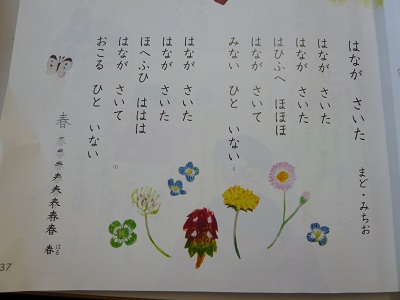 はなが さいた
まど・みちお
はなが さいた
はなが さいた
はひふへ ほほほ
はなが さいて
みない ひと いない
5
はなが さいた
はなが さいた
ほへふひ ははは
はなが さいて
10
おこる ひと いない
春
春 はる
37